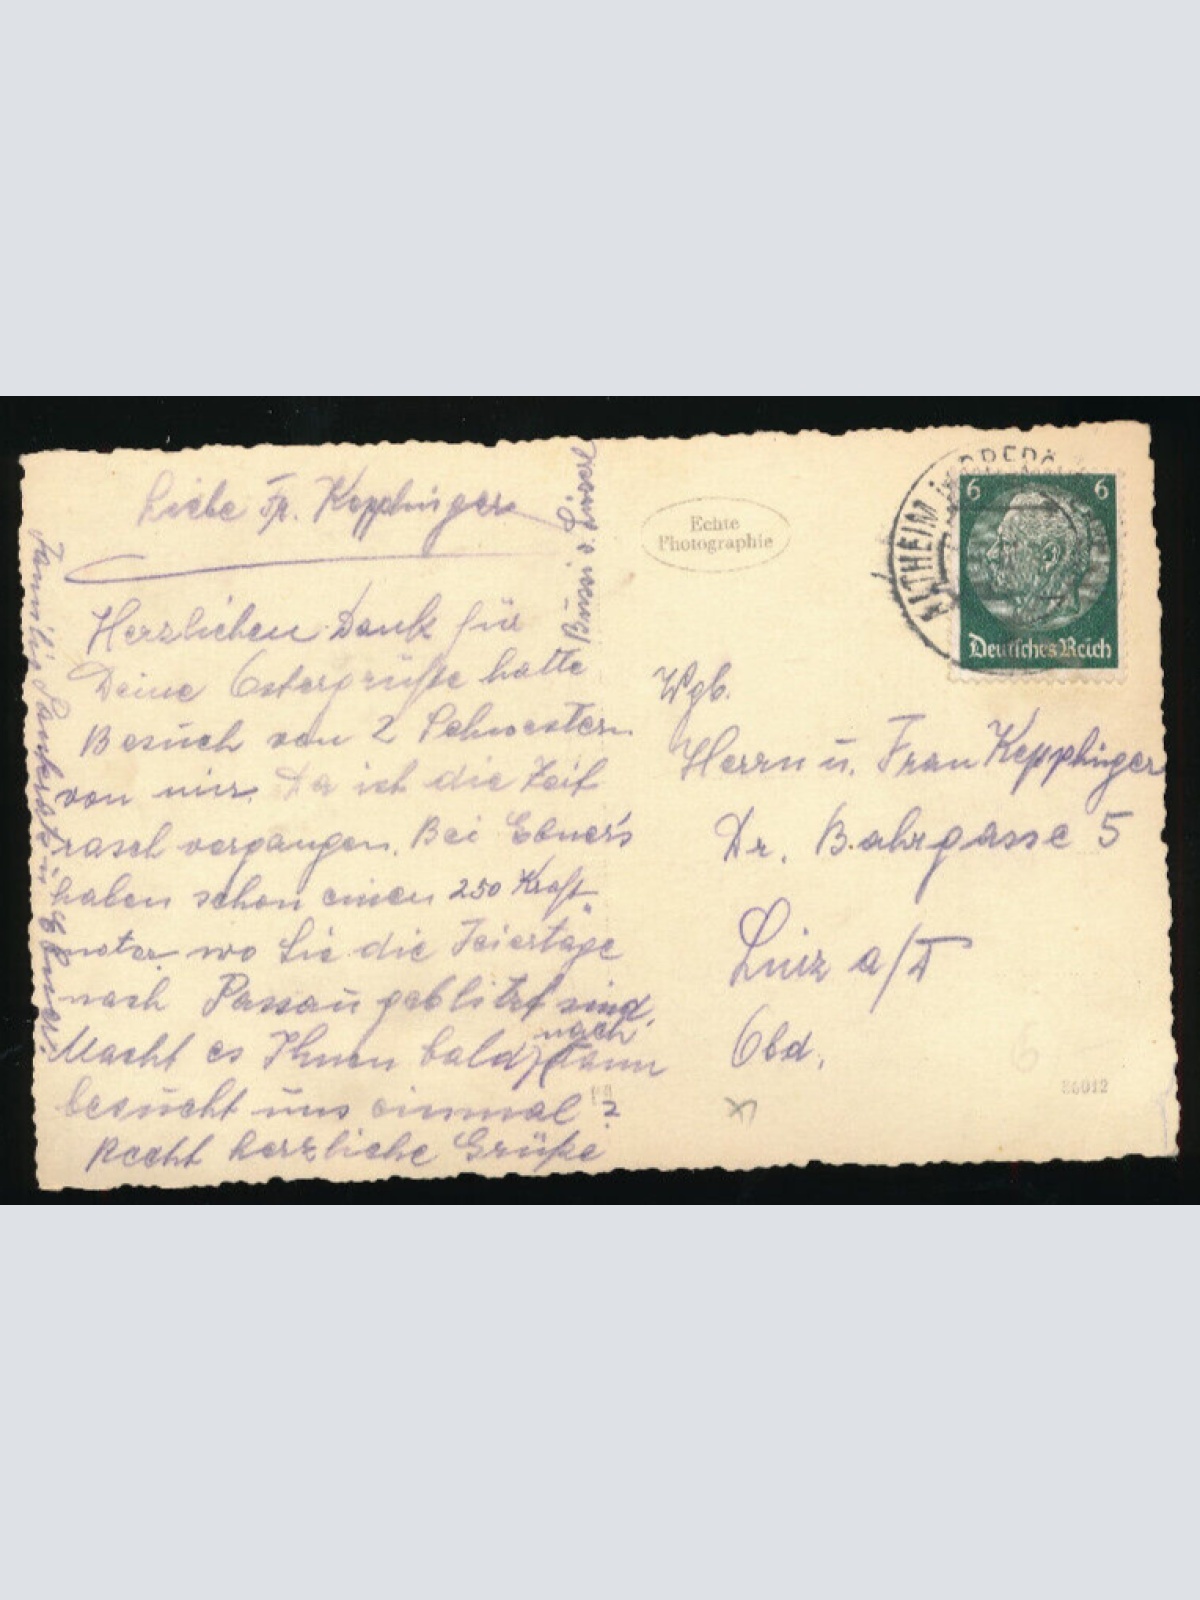 Liebe Fr. Kepplinger
Herzlichen Dank für
Deine Ostergrüße hatte
Besuch von 2 Schwestern
von mir. Da ist die Zeit
rasch vergangen. Bei Ebner's
haben schon einen 250 Kraft
wo Sie die Feiertage
nach Passau geblitzt sind.
Macht es Ihnen bald nach dann
besucht uns einmal?
Recht herzliche Grüße
Familie u. Ebner.
Bussi v. Liserl
Echte
Photographie
ALTHEIM
6 6
Deutsches Reich
Wgb.
Herrn u. Frau Kepplinger
Dr. Bahrgasse 5
Linz a/D
Obd.
86012